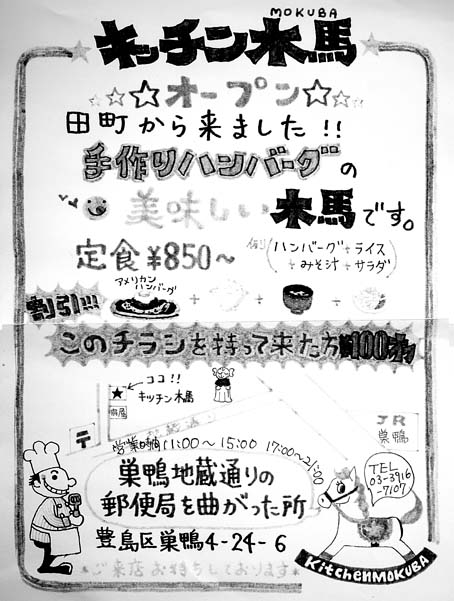 MOKUBA
キッチン木馬
☆☆☆オープン☆☆☆
田町から来ました!!
手作りハンバーグの
美味しい木馬です。
定食¥850~
例)(ハンバーグ+ライス
+みそ汁+サラダ)
アメリカン
ハンバーグ
割引!!!
このチラシを持って来た方 100オフ
★←ココ!!
キッチン木馬
〒
JR
巣鴨
営業時間 11:00~15:00 17:00~21:00
巣鴨地蔵通りの
郵便局を曲がった所
豊島区巣鴨4-24-6
TEL
03-3916
-7107
KitchenMOKUBA
ご来店お待ちしております